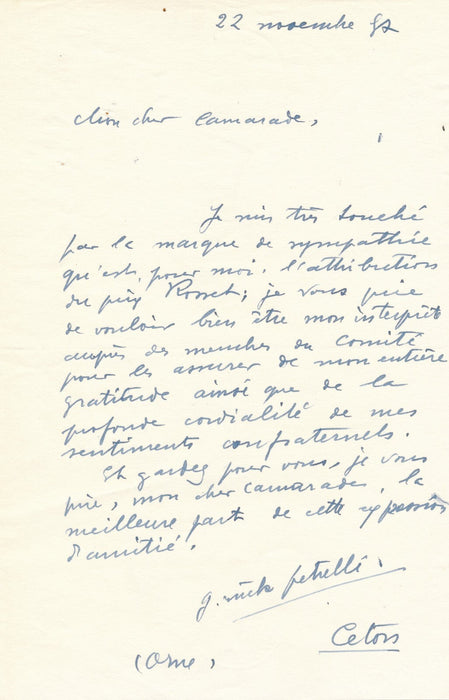 22 novembre 57
Mon cher Camarade,
Je suis très touché
par la marque de sympathie
qu'est, pour moi, l'attribution
du prix Rosset; je vous prie
de vouloir bien être mon interprète
auprès des membres du Comité
pour les assurer de mon entière
gratitude ainsi que de la
profonde cordialité de mes
sentiments confraternels.
Et gardez pour vous, je vous
prie, mon cher camarade, la
meilleure part de cette expression
d'amitié.
Petrelli.
Ceton
(Orne)